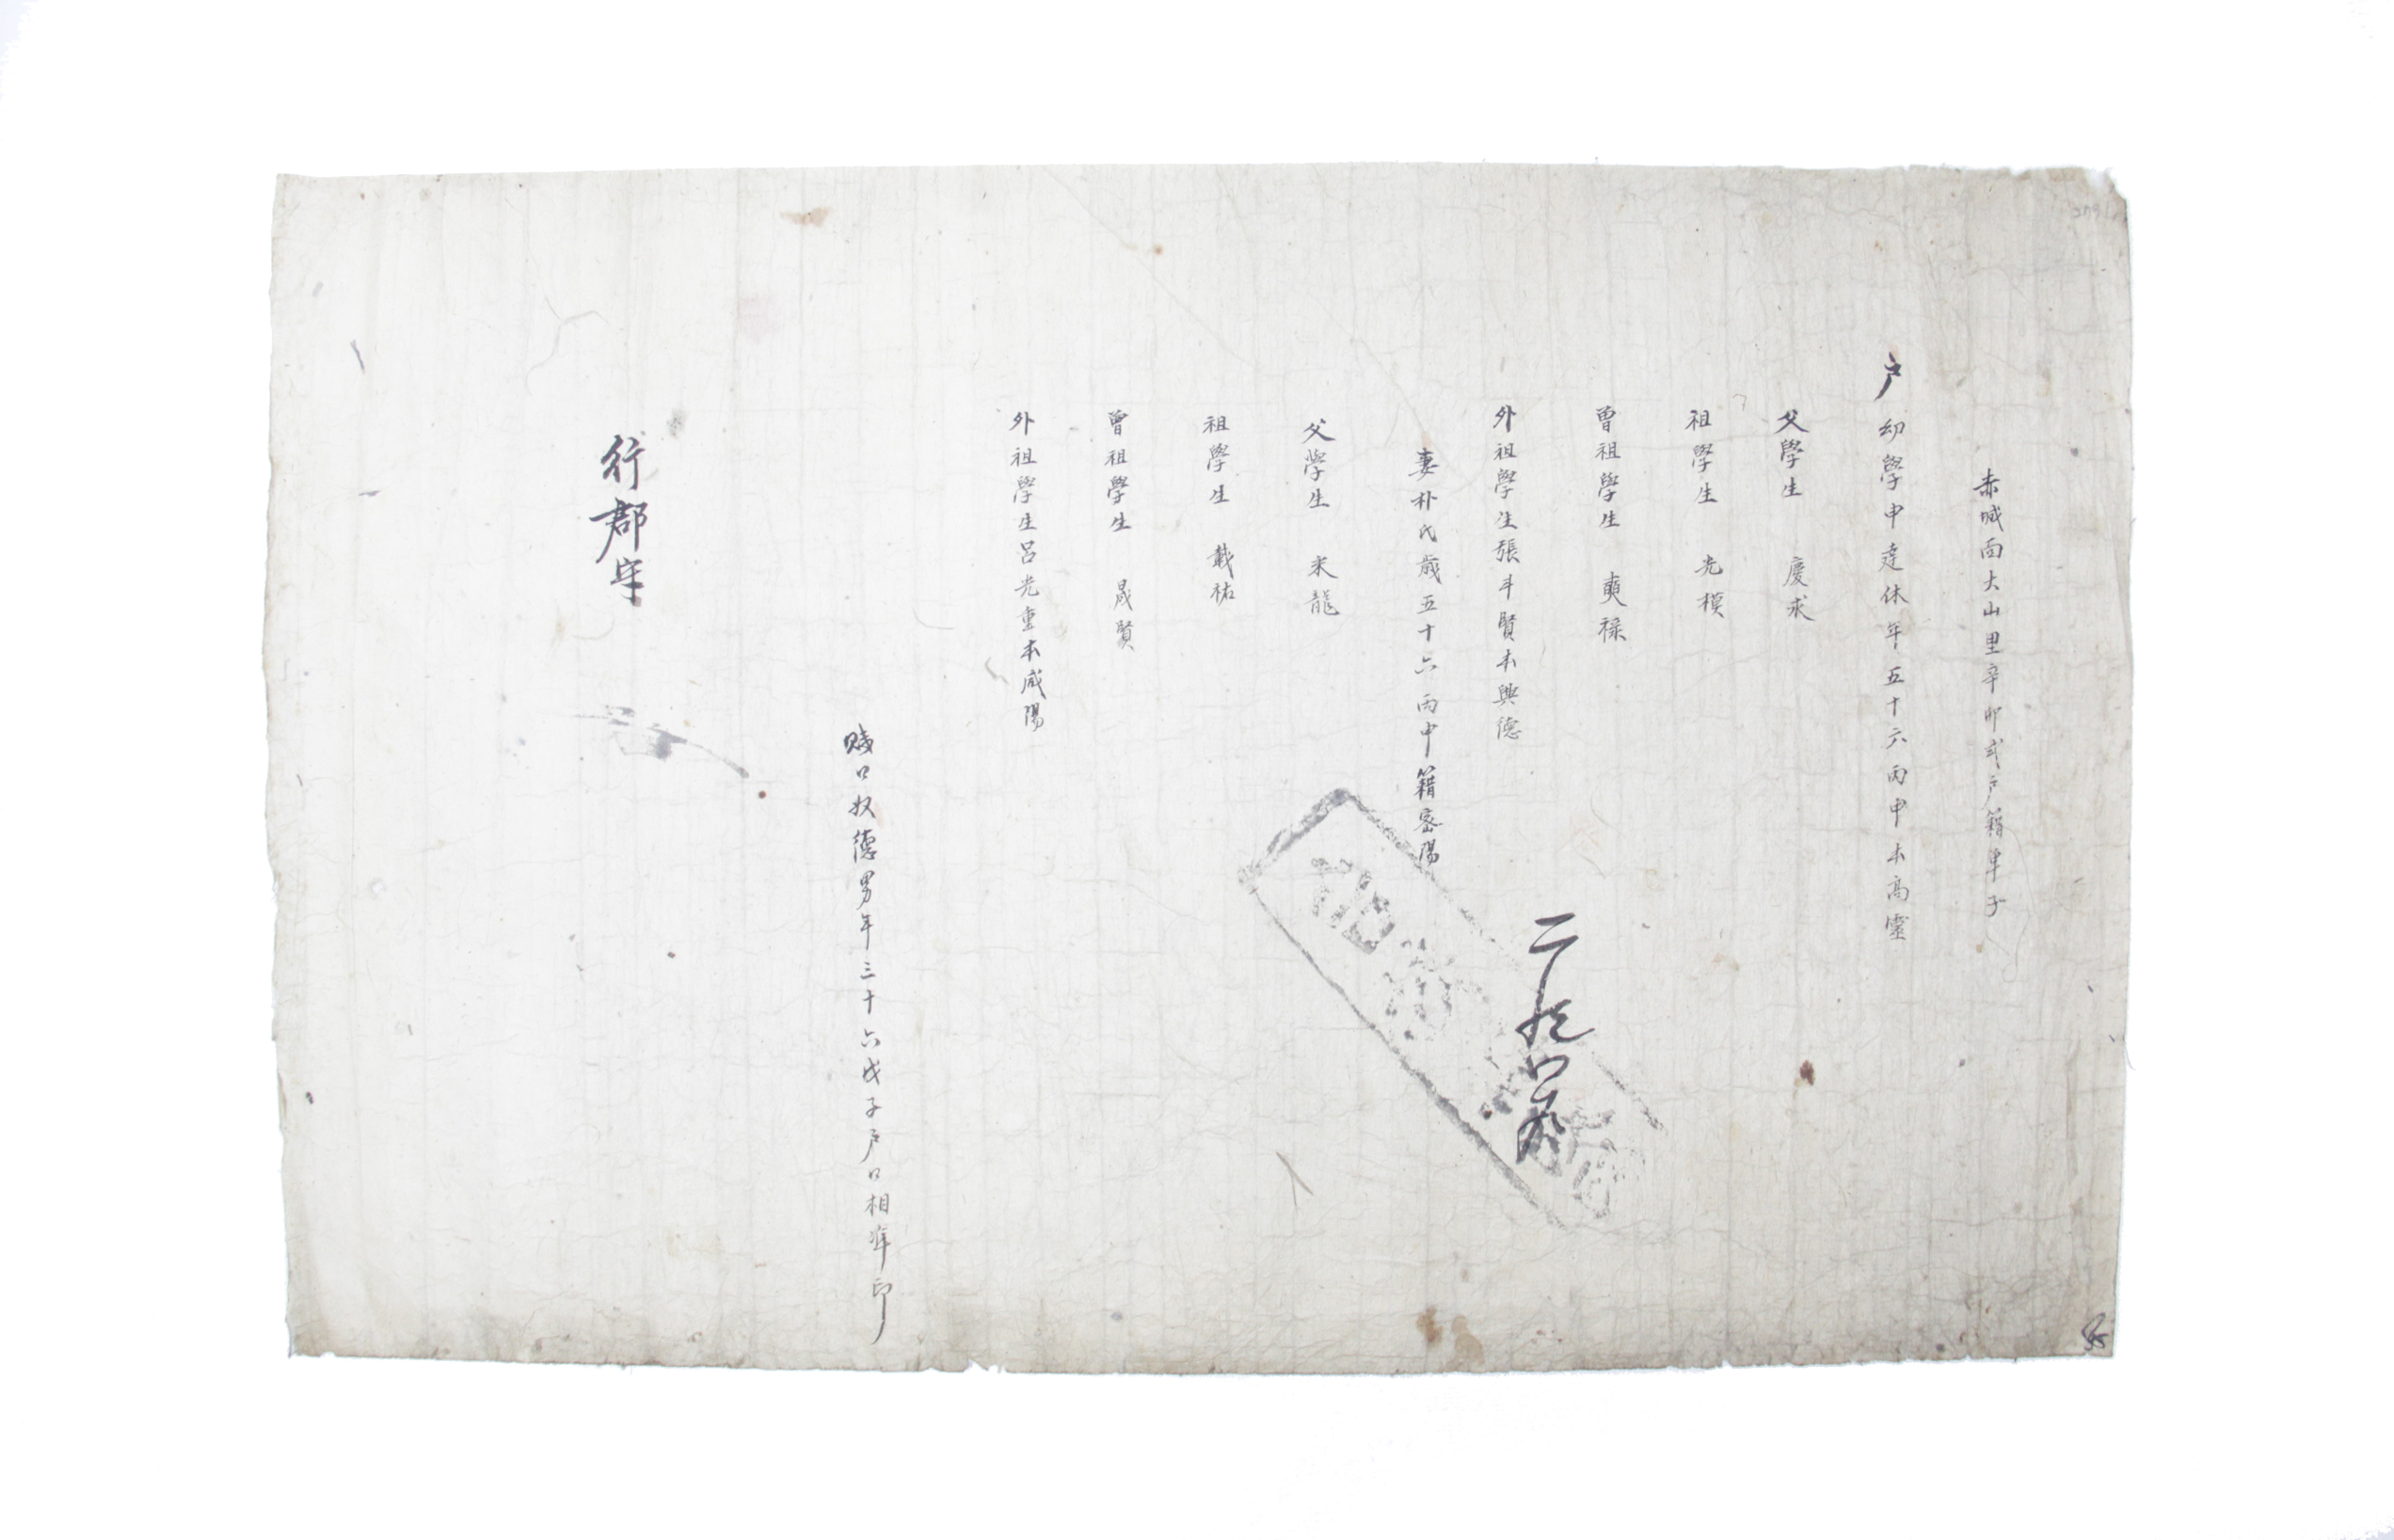 赤城面大山里辛卯式戶籍單子
戶 幼學申達休年五十六丙申本高靈
父學生 慶求
祖學生 光模
曾祖學生 奭祿
外祖學生張斗賢本興德
妻朴氏歲五十六丙申籍密陽
父學生 來龍
祖學生 載祐
曾祖學生 晟賢
外祖學生呂光重本咸陽
賤口奴德男年三十六戊子戶口相準印
行郡守